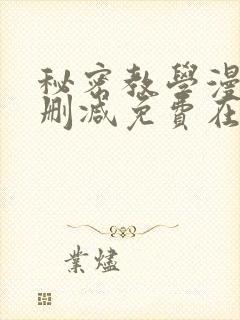 秘密教學漫
刪減免費在
業燼